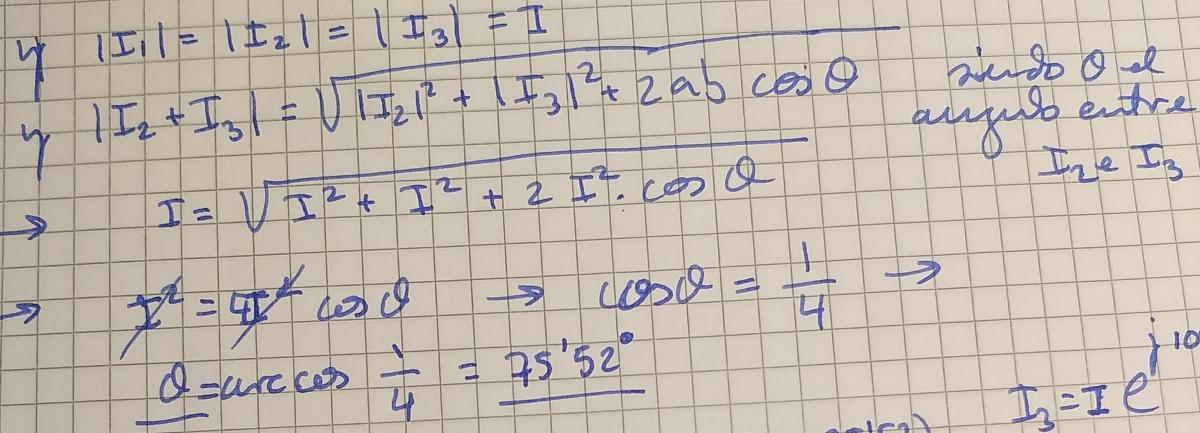 y |I₁| = |I₂| = |I₃| = I
y |I₂ + I₃| = √(|I₂|² + |I₃|² + 2ab cosθ) siendo θ el
angulo entre
I₂ e I₃
→ I = √(I² + I² + 2 I². cos θ)
→ I² = 4I² cosθ → cosθ = 1/4 →
θ = arc cos 1/4 = 75'52°
I₃ = I e^j 10